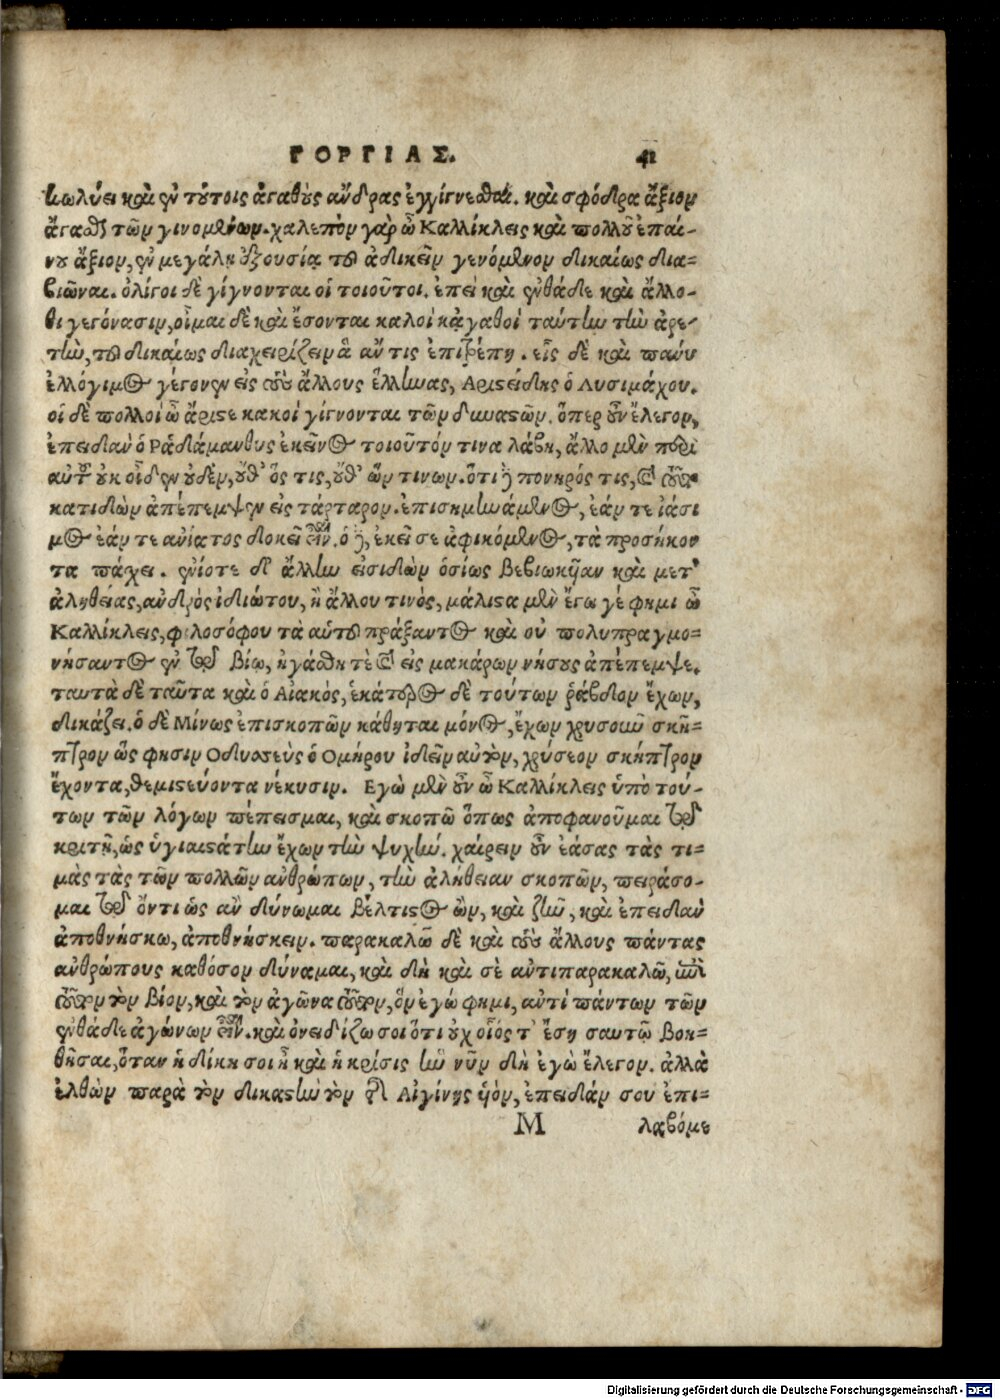 ΓΟΡΓΙΑΣ. 41
κωλύει καὶ ἐν τούτοις ἀγαθοὺς ἄνδρας ἐγγίγνεσθαι. καὶ σφόδρα ἄξιον
ἄγασθαι τῶν γινομένων. χαλεπὸν γὰρ ὦ Καλλίκλεις καὶ πολλοῦ ἐπαί-
νου ἄξιον, ἐν μεγάλῃ ἐξουσίᾳ τοῦ ἀδικεῖν γενόμενον δικαίως δια=
βιῶναι. ὀλίγοι δὲ γίγνονται οἱ τοιοῦτοι. ἐπεὶ καὶ ἐνθάδε καὶ ἄλλο-
θι γεγόνασιν, οἶμαι δὲ καὶ ἔσονται καλοὶ κἀγαθοὶ ταύτην τὴν ἀρε-
τὴν, τοῦ δικαίως διαχειρίζειν ἃ ἄν τις ἐπιτρέπῃ. εἷς δὲ καὶ πάνυ
ἐλλόγιμος γέγονεν εἰς τοὺς ἄλλους ἕλληνας, Αριστείδης ὁ Λυσιμάχου.
οἱ δὲ πολλοὶ ὦ ἄριστε κακοὶ γίγνονται τῶν δυναστῶν. ὅπερ οὖν ἔλεγον,
ἐπειδὰν ὁ Ραδάμανθυς ἐκεῖνος τοιοῦτόν τινα λάβῃ, ἄλλο μὲν περὶ
αὐτοῦ οὐκ οἶδεν οὐδὲν, οὔθ' ὅς τις, οὔθ' ὧν τινων. ὅτι δὲ πονηρός τις, καὶ τοῦτο
κατιδὼν ἀπέπεμψεν εἰς τάρταρον. ἐπισημηνάμενος, ἐάν τε ἰάσι
μος ἐάν τε ἀνίατος δοκεῖ εἶναι. ὁ δὲ, ἐκεῖσε ἀφικόμενος, τὰ προσήκον
τα πάχει. ἐνίοτε δ' ἄλλην εἰσιδὼν ὁσίως βεβιωκῆαν καὶ μετ'
ἀληθείας, ἀνδρὸς ἰδιώτου, ἢ ἄλλου τινὸς, μάλιστα μὲν ἔγω γέ φημι ὦ
Καλλίκλεις, φιλοσόφου τὰ αὑτοῦ πράξαντος καὶ οὐ πολυπραγμο=
νήσαντος ἐν τῷ βίῳ, ἠγάσθη τὲ καὶ εἰς μακάρων νήσους ἀπέπεμψε.
ταυτὰ δὲ ταῦτα καὶ ὁ Αἰακός, ἑκάτερος δὲ τούτων ῥάβδον ἔχων,
δικάζει. ὁ δὲ Μίνως ἐπισκοπῶν κάθηται μόνος, ἔχων χρυσοῦν σκῆ=
πτρον ὥς φησιν Οδυσσεὺς ὁ Ομήρου ἰδεῖν αὐτὸν, χρύσεον σκήπτρον
ἔχοντα, θεμιστεύοντα νέκυσιν. Εγὼ μὲν οὖν ὦ Καλλίκλεις ὑπὸ τού-
των τῶν λόγων πέπεισμαι, καὶ σκοπῶ ὅπως ἀποφανοῦμαι τῷ
κριτῇ, ὡς ὑγιαιστάτην ἔχων τὴν ψυχήν. χαίρειν οὖν ἐάσας τὰς τι=
μὰς τὰς τῶν πολλῶν ἀνθρώπων, τὴν ἀλήθειαν σκοπῶν, πειράσο-
μαι τῷ ὄντι ὡς ἂν δύνωμαι βέλτιστος ὢν, καὶ ζῆν, καὶ ἐπειδὰν
ἀποθνήσκω, ἀποθνήσκειν. παρακαλῶ δὲ καὶ τοὺς ἄλλους πάντας
ἀνθρώπους καθόσον δύναμαι, καὶ δὴ καὶ σὲ ἀντιπαρακαλῶ, ἐπὶ
τοῦτον τὸν βίον, καὶ τὸν ἀγῶνα τοῦτον, ὃν ἐγώ φημι, ἀντὶ πάντων τῶν
ἐνθάδε ἀγώνων εἶναι. καὶ ὀνειδίζω σοι ὅτι οὐχ οἷός τ' ἔσῃ σαυτῷ βοη=
θῆσαι, ὅταν ἡ δίκη σοι ᾖ καὶ ἡ κρίσις ἣν νῦν δὴ ἐγὼ ἔλεγον. ἀλλὰ
ἐλθὼν παρὰ τὸν δικαστὴν τὸν τῆς Αἰγίνης ὑὸν, ἐπειδάν σου ἐπι=
M λαβόμε
Digitalisierung gefördert durch die Deutsche Forschungsgemeinschaft - DFG